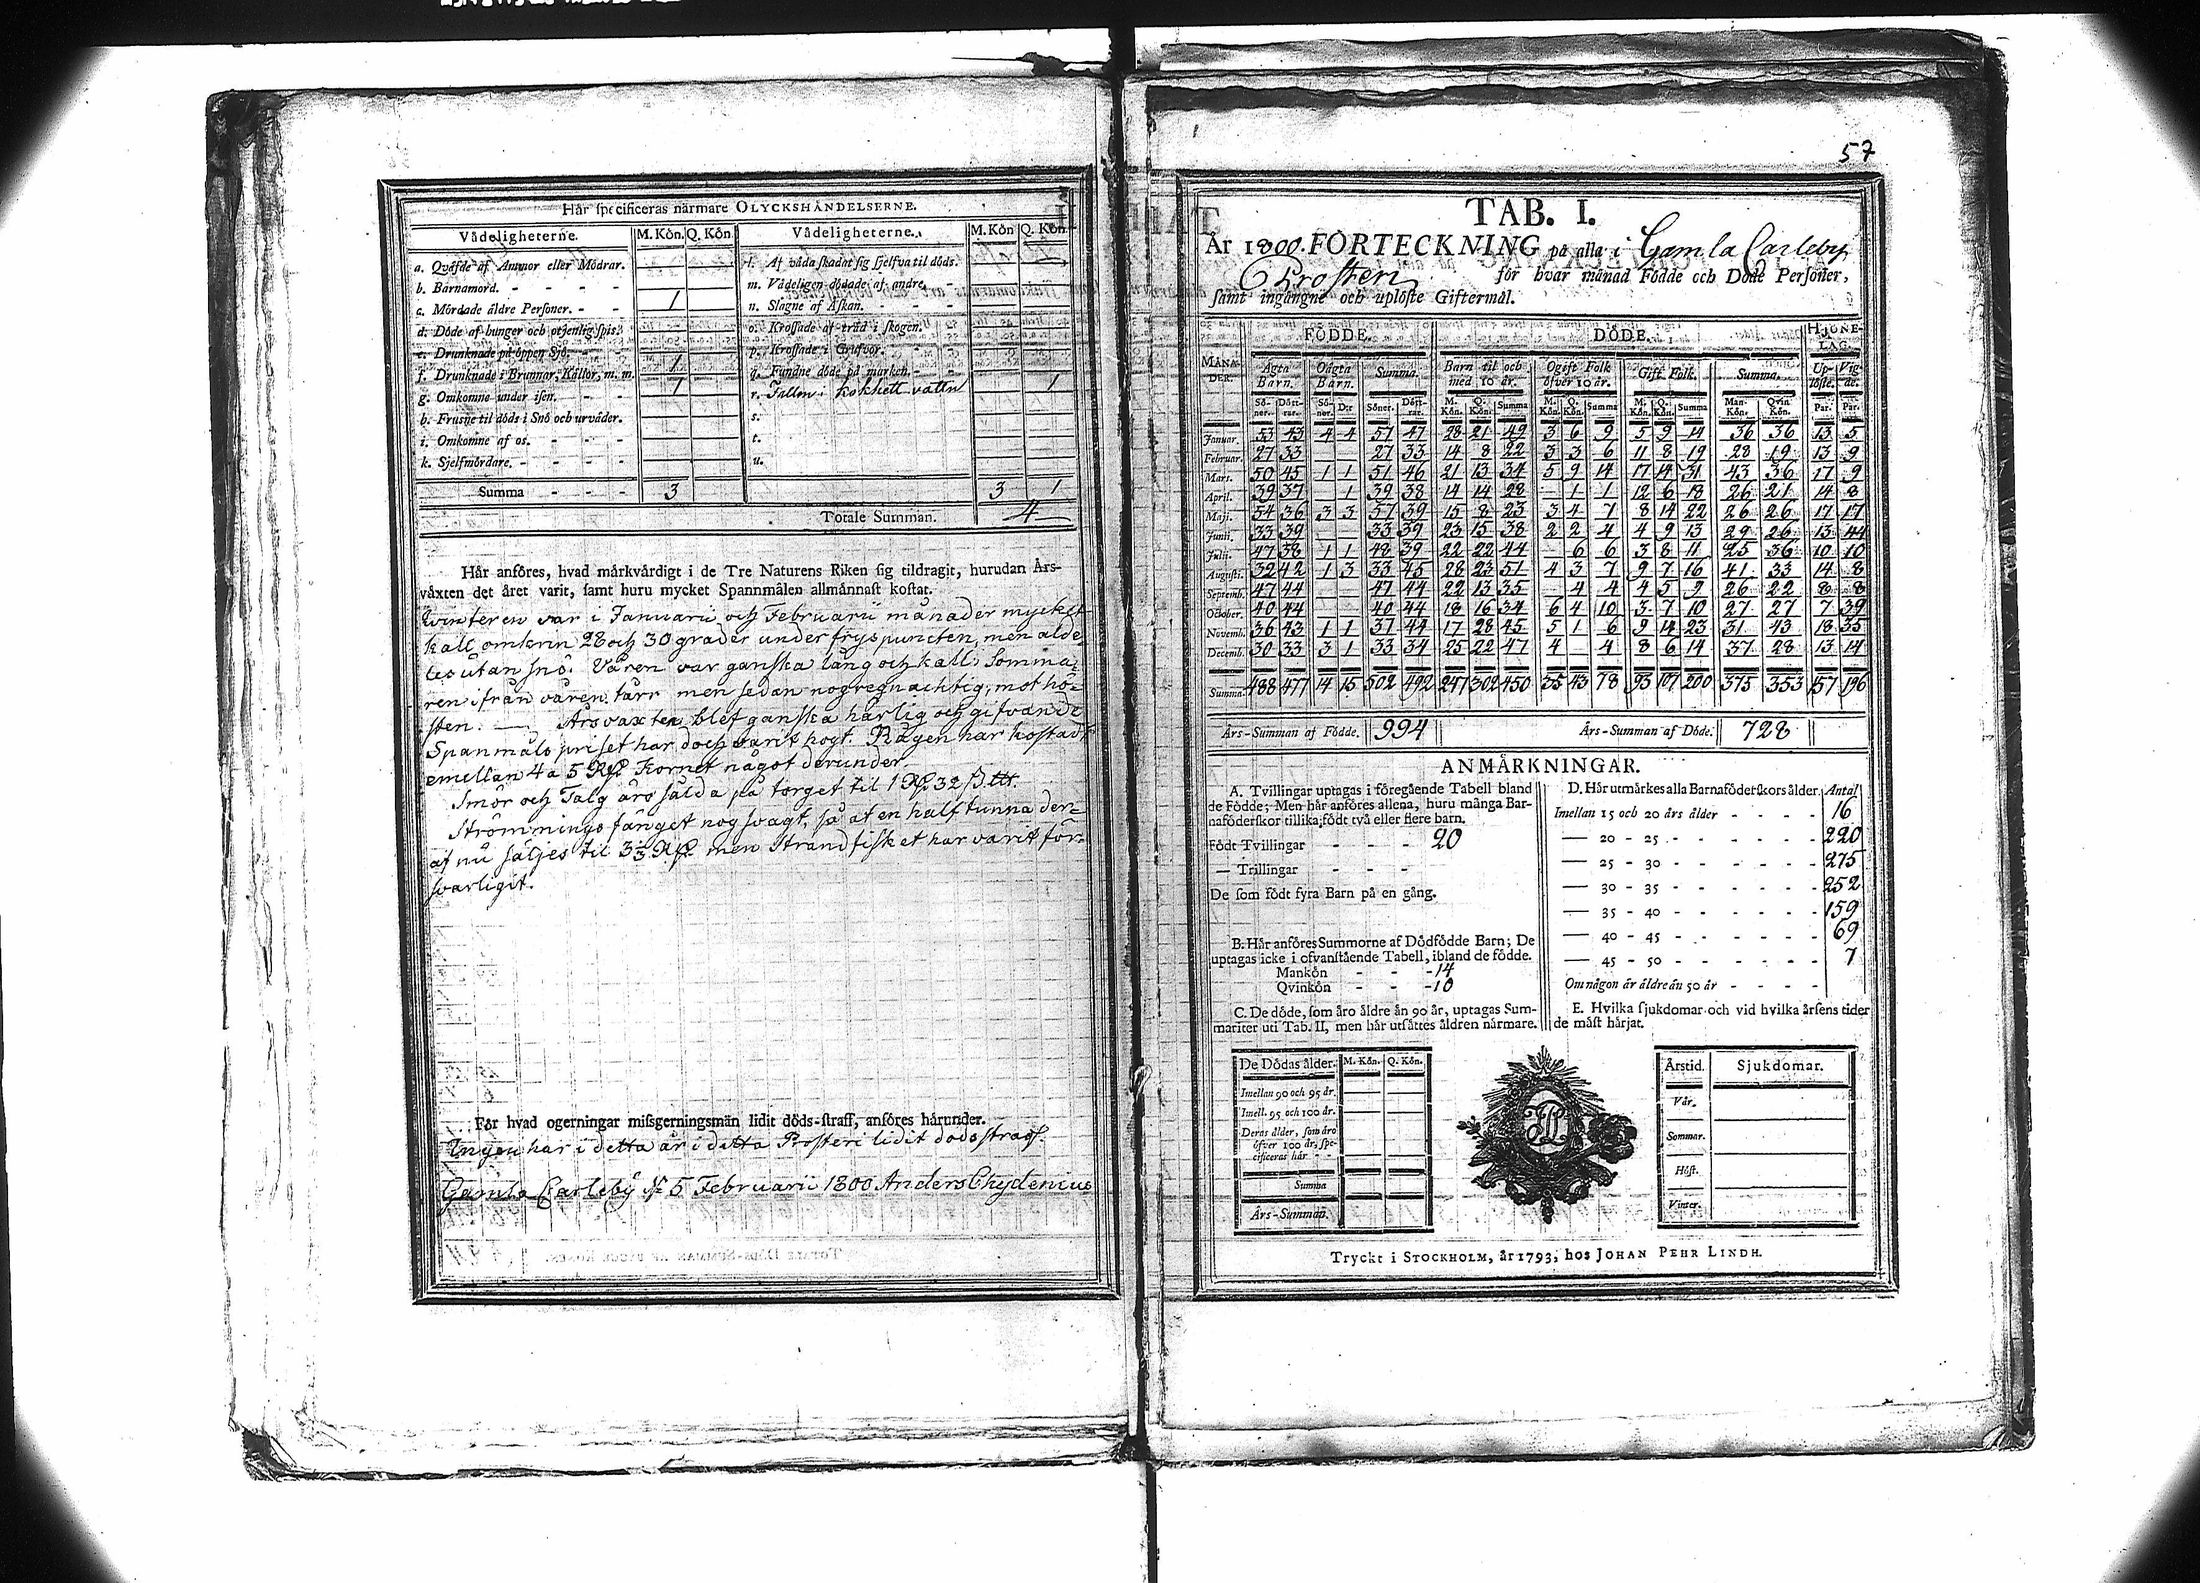 Hår specificeras närmare OLYCKSHÄNDELSERNE.
Vådeligheterne. M. Kön. Q. Kön. Vådeligheterne. M. Kön Q. Kön.
a. Qväfde af Ammor eller Mödrar. l. Af våda skadat sig sjelfva til döds.
b. Barnamord. m. Vådeligen dödade af andre.
c. Mördade äldre Personer. 1 n. Slagne af Åskan.
d. Döde af hunger och otjenlig spis. o. Krossade af träd i skogen.
e. Drunknade på öppen Sjö. p. Krossade i Grufvor.
f. Drunknade i Brunnar, Källor, m. m. 1 q. Fundne döde på marken.
g. Omkomne under isen. 1 r. Fallen i kokhett vattn 1
h. Frusne til döds i Snö och urväder. s.
i. Omkomne af os. t.
k. Sjelfmördare. u.
Summa 3 3 1
Totale Summan. 4
Här anföres, hvad märkvärdigt i de Tre Naturens Riken sig tildragit, hurudan Års-
växten det året varit, samt huru mycket Spannmålen allmännast kostat.
Winteren var i Januarii och Februarii månader mycket
kall omkrin 28 och 30 grader under fryspuncten, men alde
les utan snö. Våren var ganska lång och kall; Somma-
ren ifrån våren tårr men sedan nog regnachtig, mot hö-
sten. — Årsvaxten blef ganska härlig och gifvande
Spanmåls priset har doch varit högt. Rågen har kostadt
emellan 4 a 5 Rd. Kornet något derunder.
Smör och Talg äro sålda på torget til 1 Rd 32 s.
Strömmings fånget nog svagt, så at en half tunna der-
af nu säljes til 3⅓ Rd. men Strandfisket har varit för-
svarligit.
För hvad ogerningar missgerningsmän lidit döds-straff, anföres härunder.
Ingen har i detta år i detta Prosteri lidit dödsstraff.
Gamla Carleby d. 5 Februarii 1800 Anders Chydenius
57
TAB. I.
År 1800. FÖRTECKNING på alla i Gamla Carleby
Prosteri för hvar månad Födde och Döde Personer,
samt ingångne och uplöste Giftermål.
FÖDDE. DÖDE. HJONE-
LAG.
MÅNA-
DER. Ägta
Barn. Oägta
Barn. Summa. Barn til och
med 10 år. Ogift Folk
öfver 10 år. Gift Folk. Summa. Up-
löste. Vig-
de.
Sö-
ner. Dött-
rar. Sö-
ner. D:r Söner. Dött-
rar. M.
Kön. Q.
Kön. Summa M.
Kön. Q.
Kön. Summa M.
Kön. Q.
Kön. Summa Man-
Kön. Qvin
Kön. Par. Par.
Januar. 53 43 4 4 57 47 28 21 49 3 6 9 5 9 14 36 36 13 5
Februar. 27 33 27 33 14 8 22 3 3 6 11 8 19 28 19 13 9
Mars. 50 45 1 1 51 46 21 13 34 5 9 14 17 14 31 43 36 17 9
April. 39 37 1 39 38 14 14 28 — 1 1 12 6 18 26 21 14 8
Maji. 54 36 3 3 57 39 15 8 23 3 4 7 8 14 22 26 26 17 17
Junii. 33 39 33 39 23 15 38 2 2 4 4 9 13 29 26 13 44
Julii. 47 38 1 1 48 39 22 22 44 — 6 6 3 8 11 25 36 10 10
Augusti. 32 42 1 3 33 45 28 23 51 4 3 7 9 7 16 41 33 14 8
Septemb. 47 44 47 44 22 13 35 4 4 4 5 9 26 22 8 8
October. 40 44 40 44 18 16 34 6 4 10 3 7 10 27 27 7 39
Novemb. 36 43 1 1 37 44 17 28 45 5 1 6 9 14 23 31 43 18 35
Decemb. 30 33 3 1 33 34 25 22 47 4 4 8 6 14 37 28 13 14
Summa. 488 477 14 15 502 492 247 302 450 35 43 78 93 107 200 375 353 157 196
Års-Summan af Födde. 994 Års-Summan af Döde. 728
ANMÄRKNINGAR.
A. Tvillingar uptagas i föregående Tabell bland
de Födde; Men här anföres allena, huru många Bar-
naföderskor tillika födt två eller flere barn.
Födt Tvillingar 20
— Trillingar
De som födt fyra Barn på en gång.
B. Här anföres Summorne af Dödfödde Barn; De
uptagas icke i ofvanstående Tabell, ibland de födde.
Mankön 14
Qvinkön 10
C. De döde, som äro äldre än 90 år, uptagas Sum-
mariter uti Tab. II, men här utsättes åldren närmare.
D. Här utmärkes alla Barnaföderskors ålder. Antal
Imellan 15 och 20 års ålder 16
— 20 - 25 220
— 25 - 30 275
— 30 - 35 252
— 35 - 40 159
— 40 - 45 69
— 45 - 50 7
Om någon är äldre än 50 år
E. Hvilka sjukdomar och vid hvilka årsens tider
de mäst härjat.
De Dödas ålder. M. Kön. Q. Kön.
Imellan 90 och 95 år.
Imell. 95 och 100 år.
Deras ålder, som äro
öfver 100 år, spe-
cificeras här
Summa
Års-Summan.
Årstid. Sjukdomar.
Vår.
Sommar.
Höst.
Vinter.
Tryckt i STOCKHOLM, år 1793, hos JOHAN PEHR LINDH.